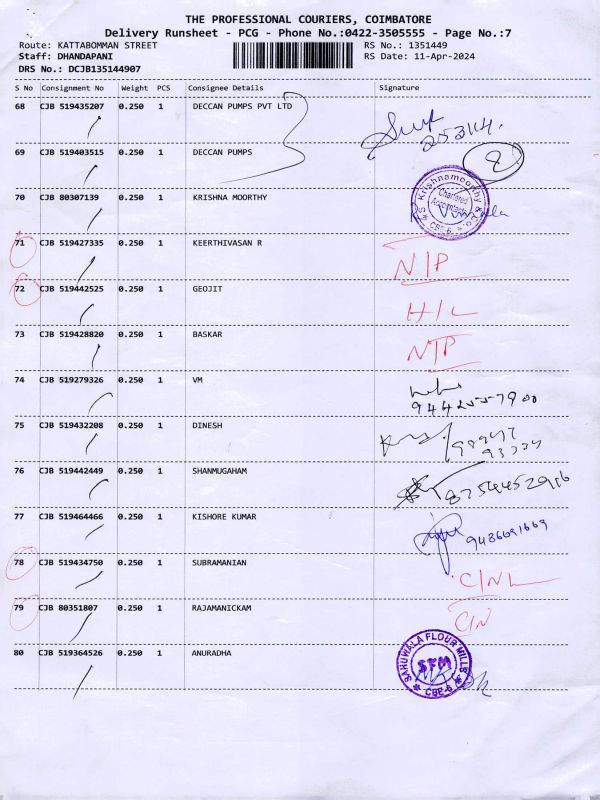 THE PROFESSIONAL COURIERS, COIMBATORE
Delivery Runsheet - PCG - Phone No.:0422-3505555 - Page No.:7
Route: KATTABOMMAN STREET RS No.: 1351449
Staff: DHANDAPANI RS Date: 11-Apr-2024
DRS No.: DCJB135144907
S No Consignment No Weight PCS Consignee Details Signature
68 CJB 519435207 0.250 1 DECCAN PUMPS PVT LTD
253114.
69 CJB 519403515 0.250 1 DECCAN PUMPS
2
70 CJB 80307139 0.250 1 KRISHNA MOORTHY
S Krishnamoorthy & Co. * CBE-6 *
Chartered
Accountants
71 CJB 519427335 0.250 1 KEERTHIVASAN R
N/P
72 CJB 519442525 0.250 1 GEOJIT
H/L
73 CJB 519428820 0.250 1 BASKAR
NTP
74 CJB 519279326 0.250 1 VM
75 CJB 519432208 0.250 1 DINESH
76 CJB 519442449 0.250 1 SHANMUGHAM
8754452916
77 CJB 519464466 0.250 1 KISHORE KUMAR
9486691669
78 CJB 519434750 0.250 1 SUBRAMANIAN
C/NL
79 CJB 80351807 0.250 1 RAJAMANICKAM
C/N
80 CJB 519364526 0.250 1 ANURADHA
SARUWALA FLOUR MILLS * CBE-6 *
SFM